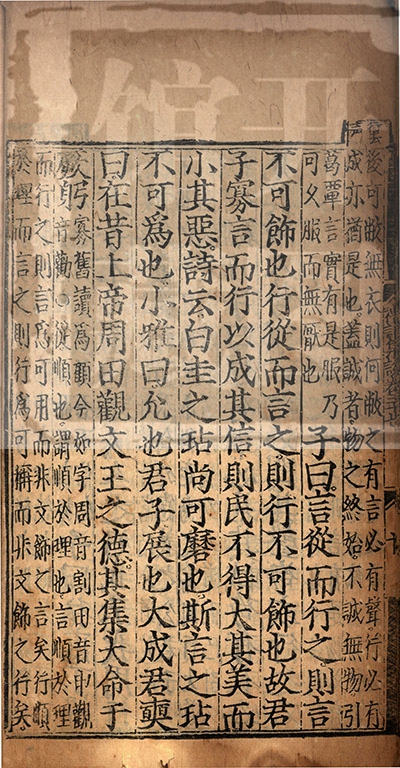 後可敝無衣則何敝之有言必有聲行必有
成亦猶是也蓋誠者物之終始不誠無物引
葛覃言實有是服乃
可久服而無厭也
子曰言從而行之則言
不可飾也行從而言之則行不可飾也故君
子寡言而行以成其信則民不得大其美而
小其惡詩云白圭之玷尚可磨也斯言之玷
不可爲也小雅曰允也君子展也大成君奭
曰在昔上帝周田觀文王之德其集大命于
厥躬
寡舊讀爲顧今如字周音割田音申觀
音勸○從順也謂順於理也言順於理
而行之則言爲可用而非文飾之言矣行順
於理而言之則行爲可稱而非文飾之行矣